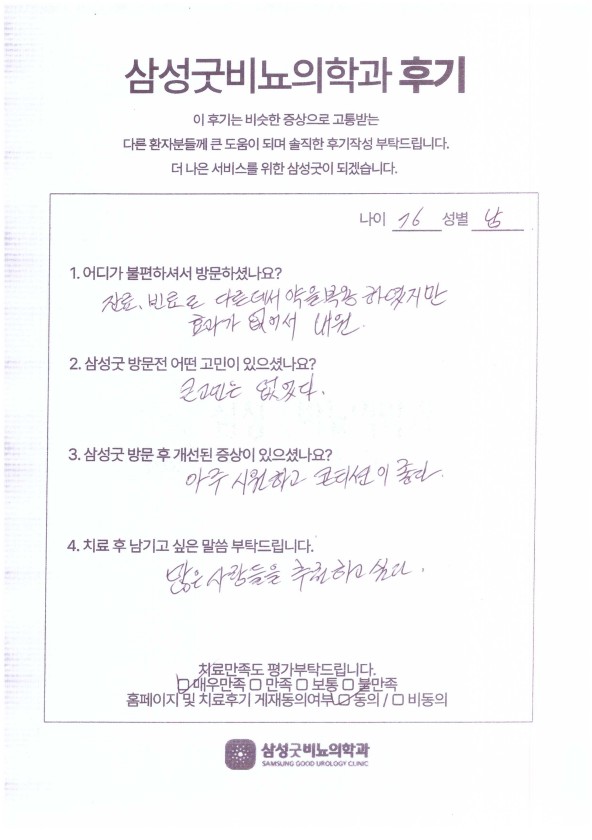 삼성굿비뇨의학과 후기
이 후기는 비슷한 증상으로 고통받는
다른 환자분들께 큰 도움이 되며 솔직한 후기작성 부탁드립니다.
더 나은 서비스를 위한 삼성굿이 되겠습니다.
나이 76 성별 남
1. 어디가 불편하셔서 방문하셨나요?
잔료, 빈료로 다른데서 약을 복용 하였지만
효과가 없어서 내원.
2. 삼성굿 방문전 어떤 고민이 있으셨나요?
큰고민은 없었다.
3. 삼성굿 방문 후 개선된 증상이 있으셨나요?
아주 시원하고 콘디션이 좋다.
4. 치료 후 남기고 싶은 말씀 부탁드립니다.
많은 사람들을 추천하고 싶다.
치료만족도 평가부탁드립니다.
☑ 매우만족 ☐ 만족 ☐ 보통 ☐ 불만족
홈페이지 및 치료후기 게재동의여부 ☑ 동의 / ☐ 비동의
삼성굿비뇨의학과
SAMSUNG GOOD UROLOGY CLINIC